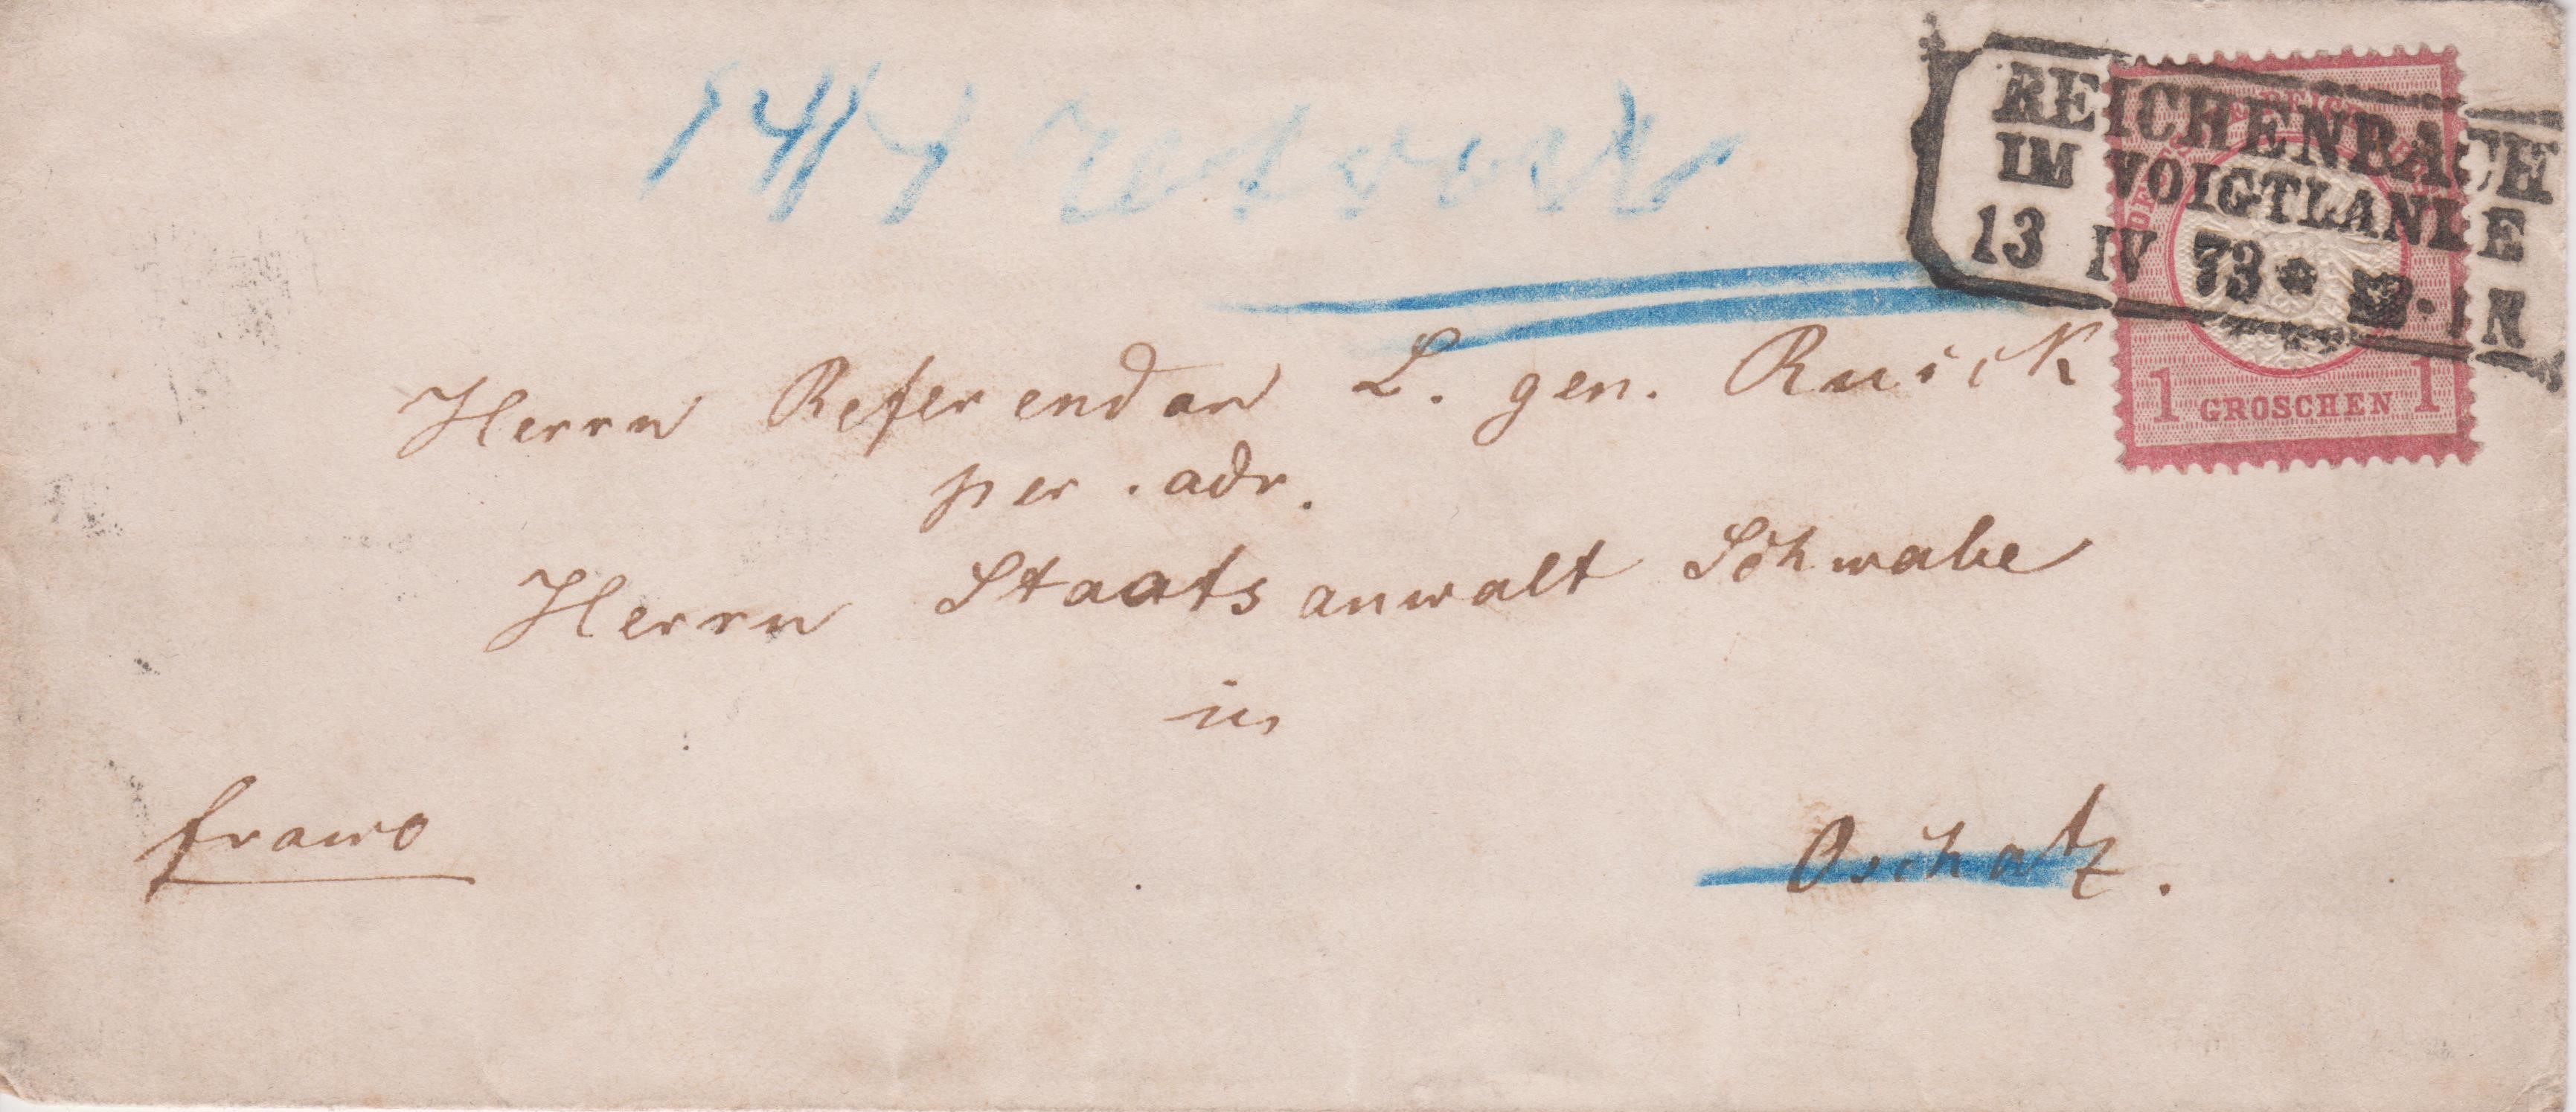 14/4
REICHENBACH
IM VOIGTLANDE
13 IV 73 * · N
1 GROSCHEN 1
Herrn Referendar L. gen. Ruick
per. adr.
Herrn Staatsanwalt Schwabe
in
franco
Oschatz.